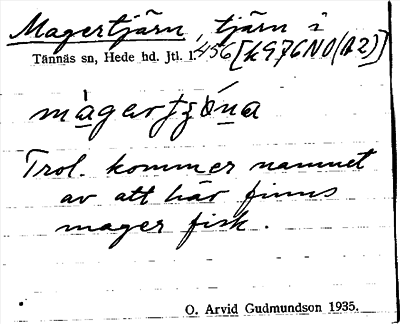 Magertjärn, tjärn i
Tännäs sn, Hede hd. Jtl. l. 456 [k976NO(A2)]
Trol. kommer namnet
av att här finns
mager fisk.
O. Arvid Gudmundson 1935.